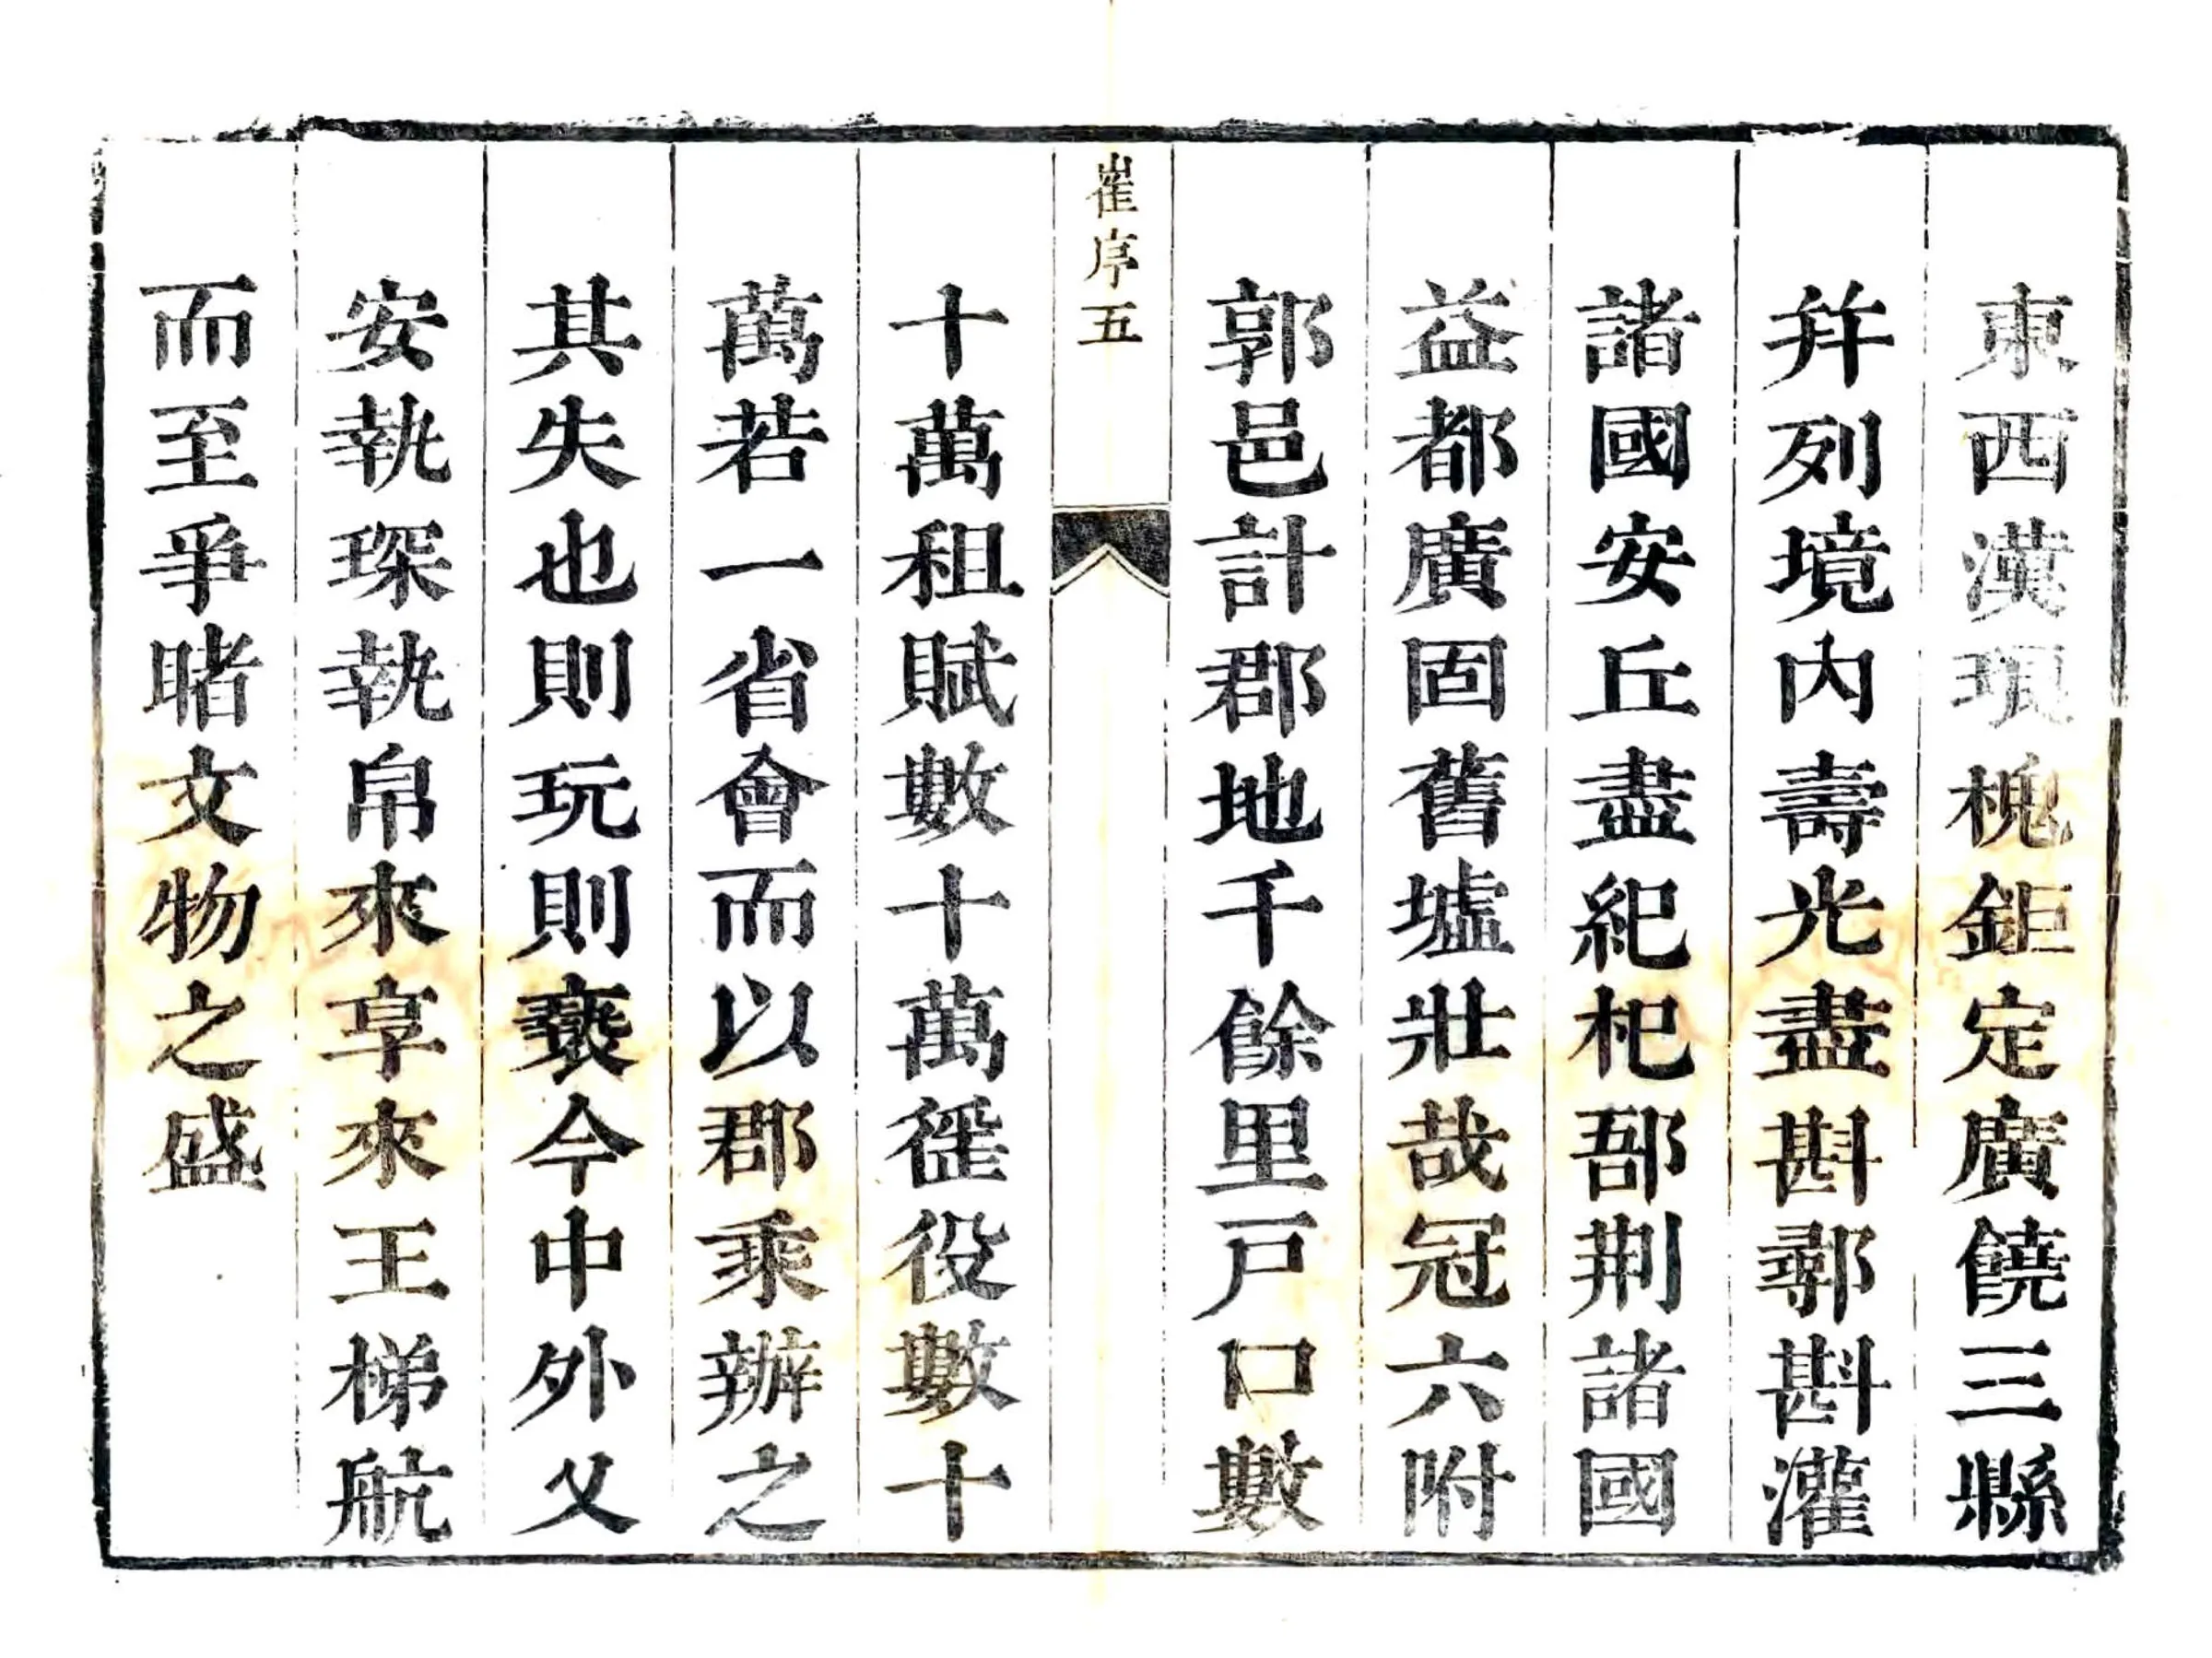 東西漢琅槐鉅定廣饒三縣
并列境内壽光盡斟鄩斟灌
諸國安丘盡紀杞郚荆諸國
益都廣固舊墟壯哉冠六附
郭邑計郡地千餘里戸口數
崔序五
十萬租賦數十萬徭役數十
萬若一省會而以郡乘辦之
其失也則玩則䙝今中外乂
安執琛執帛來享來王梯航
而至爭睹文物之盛